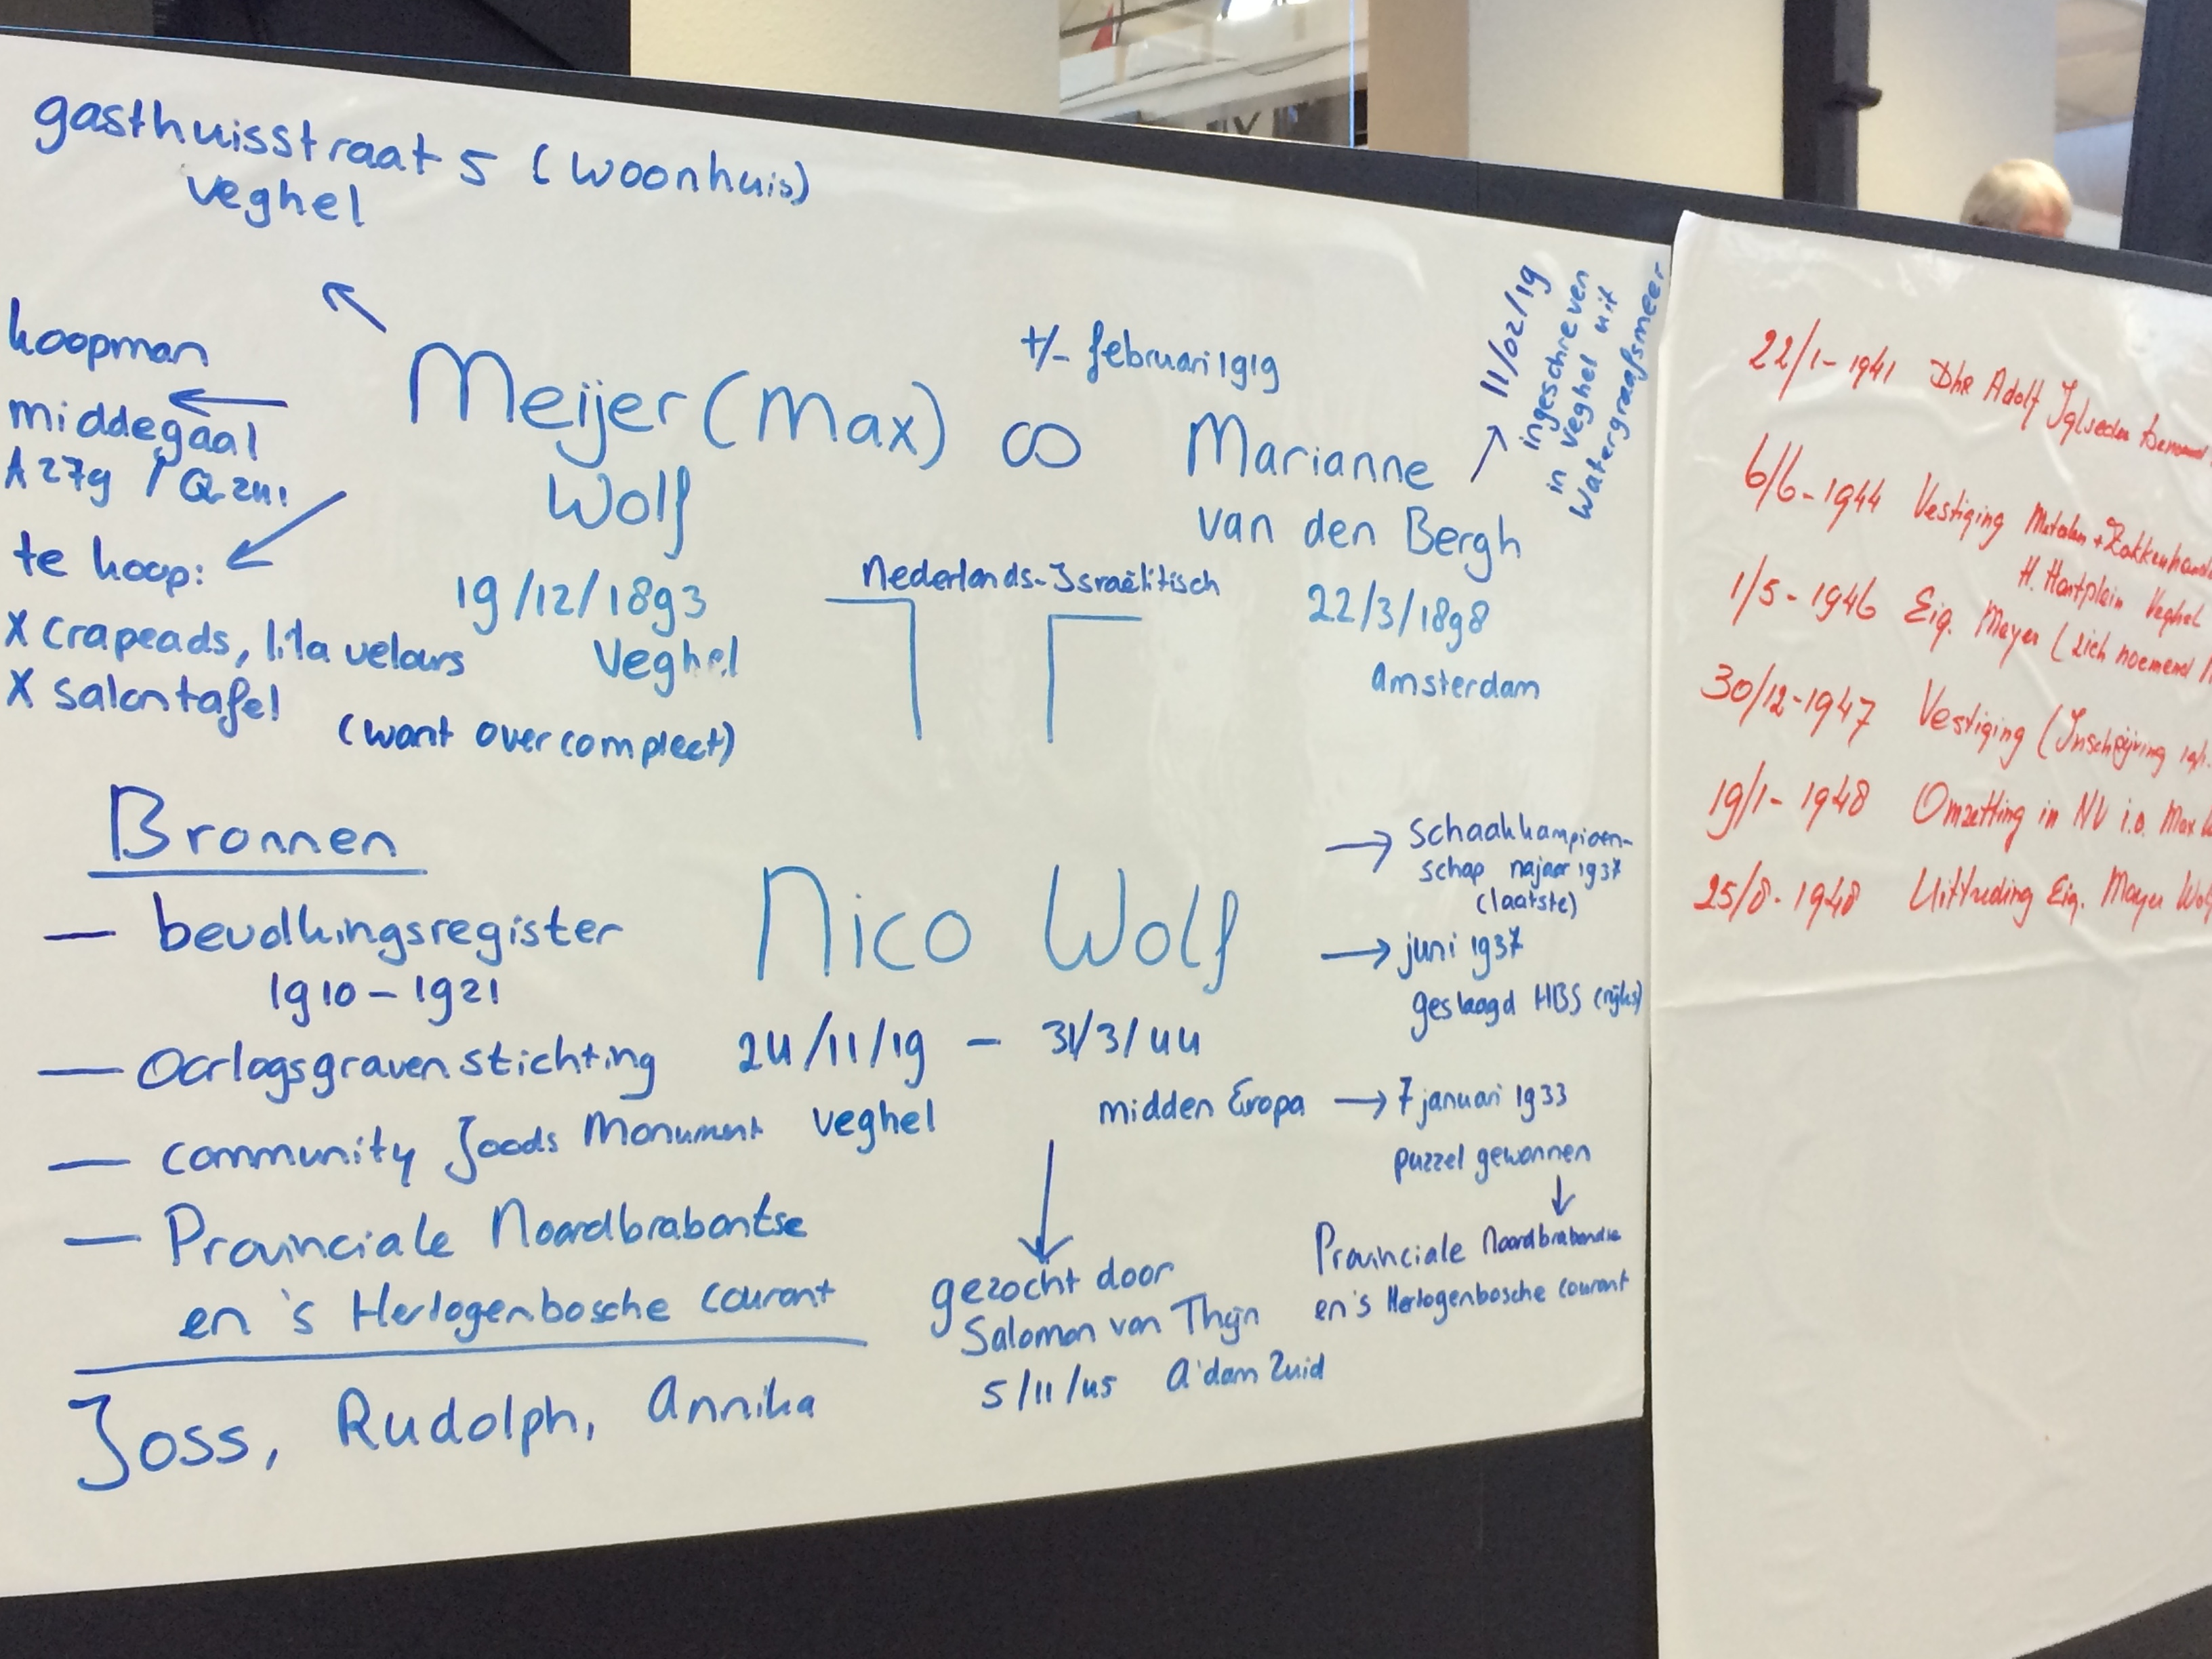 gasthuisstraat 5 (woonhuis)
veghel
koopman
middegaal
A 27g / Q 241
te koop:
X crapeads, lila velours
X salontafel
(want overcompleet)
Meijer (Max)
Wolf
19/12/1893
Veghel
+/- februari 1919
∞
Nederlands-Israëlitisch
Marianne
van den Bergh
22/3/1898
Amsterdam
→ 11/02/19
ingeschreven
in veghel uit
Watergraafsmeer
Bronnen
— bevolkingsregister
1910 – 1921
— Oorlogsgravenstichting
— community Joods Monument
— Provinciale Noordbrabantse
en 's Hertogenbosche courant
Joss, Rudolph, Annika
Nico Wolf
24/11/19 – 31/3/44
veghel
midden Europa
gezocht door
Salomon van Thijn
5/11/45 A'dam Zuid
→ Schaakkampioen-
schap najaar 1937
(laatste)
→ juni 1937
geslaagd HBS (rijks)
→ 7 januari 1933
puzzel gewonnen
Provinciale Noordbrabandse
en 's Hertogenbosche courant
22/1-1941 Dhr Adolf
6/6-1944 Vestiging Metalen + Zakkenhandel
H. Hartplein Veghel
1/5-1946 Eig. Meyer (zich noemend
30/12-1947 Vestiging (Inschrijving
19/1-1948 Omzetting in NV i.o. Max
25/8-1948 Uittreding Eig. Meyer Wolf